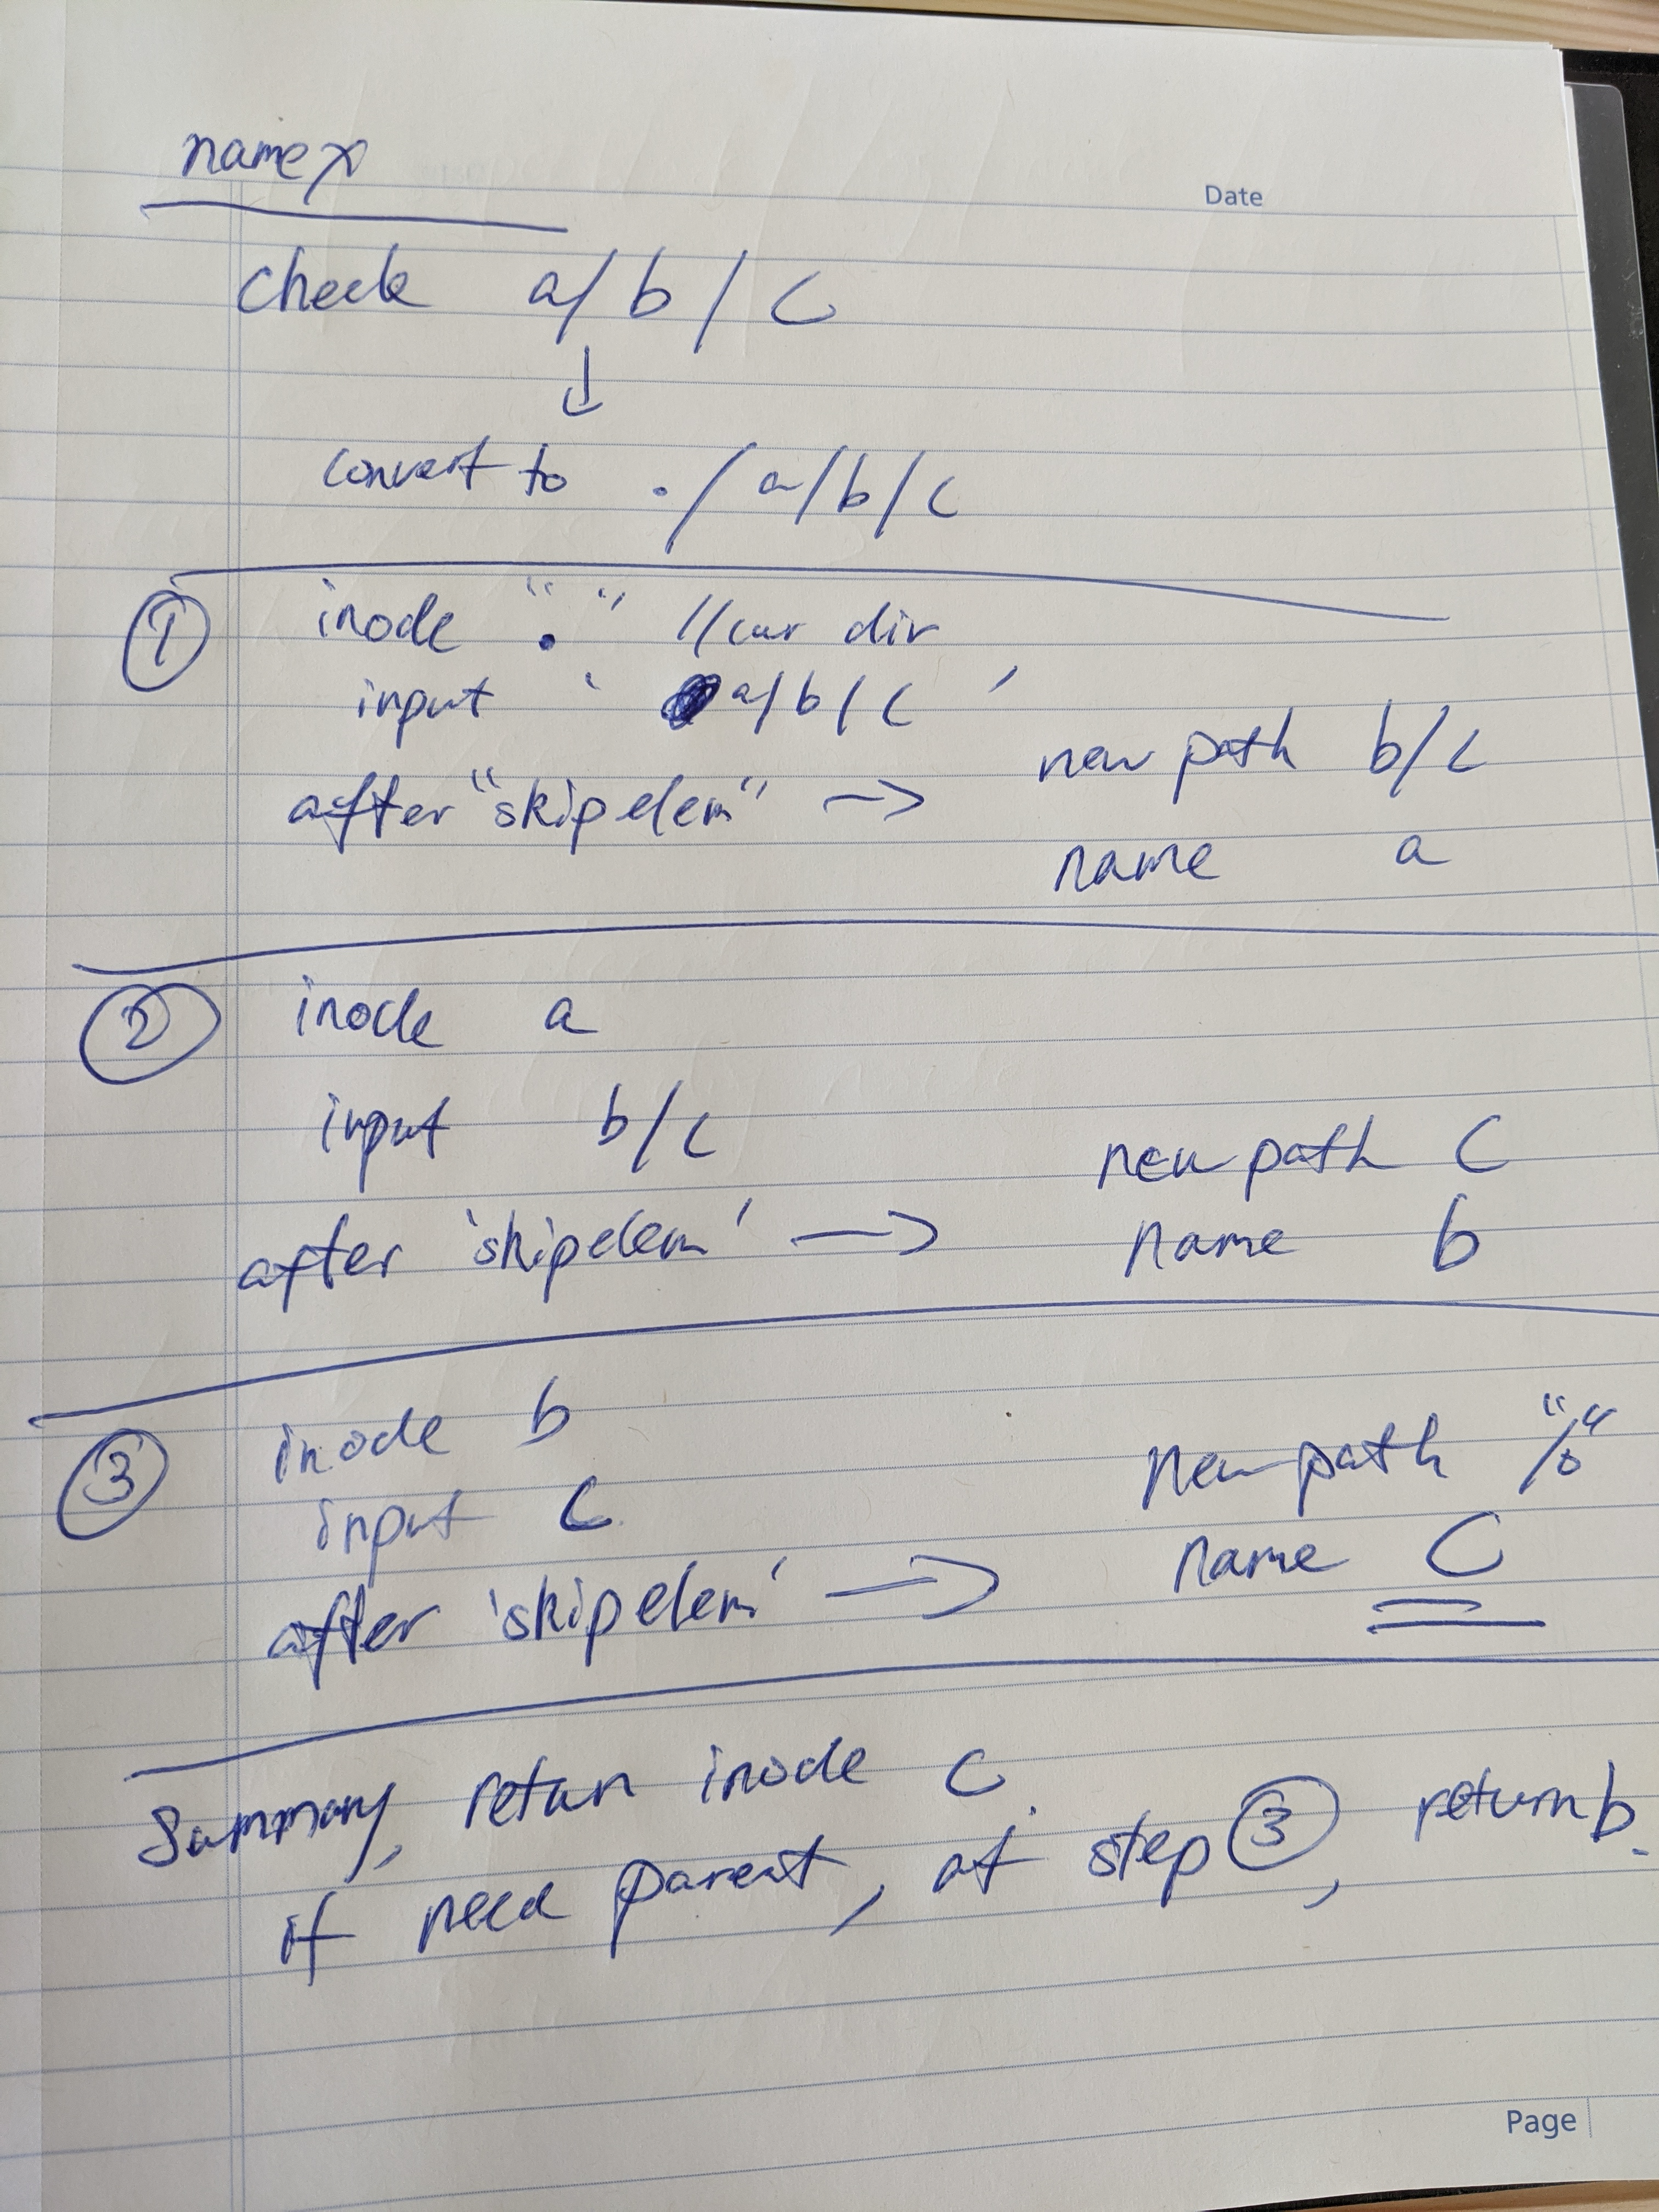 namex
Date
check a/b/c
↓
convert to ./a/b/c
① inode "." //cur dir
input ' a/b/c '
after "skipelem" → new path b/c
name a
② inode a
input b/c
after 'skipelem' → new path c
name b
③ inode b
input c
after 'skipelem' → new path
name c
Summary, return inode c.
if need parent, at step ③, return b.
Page